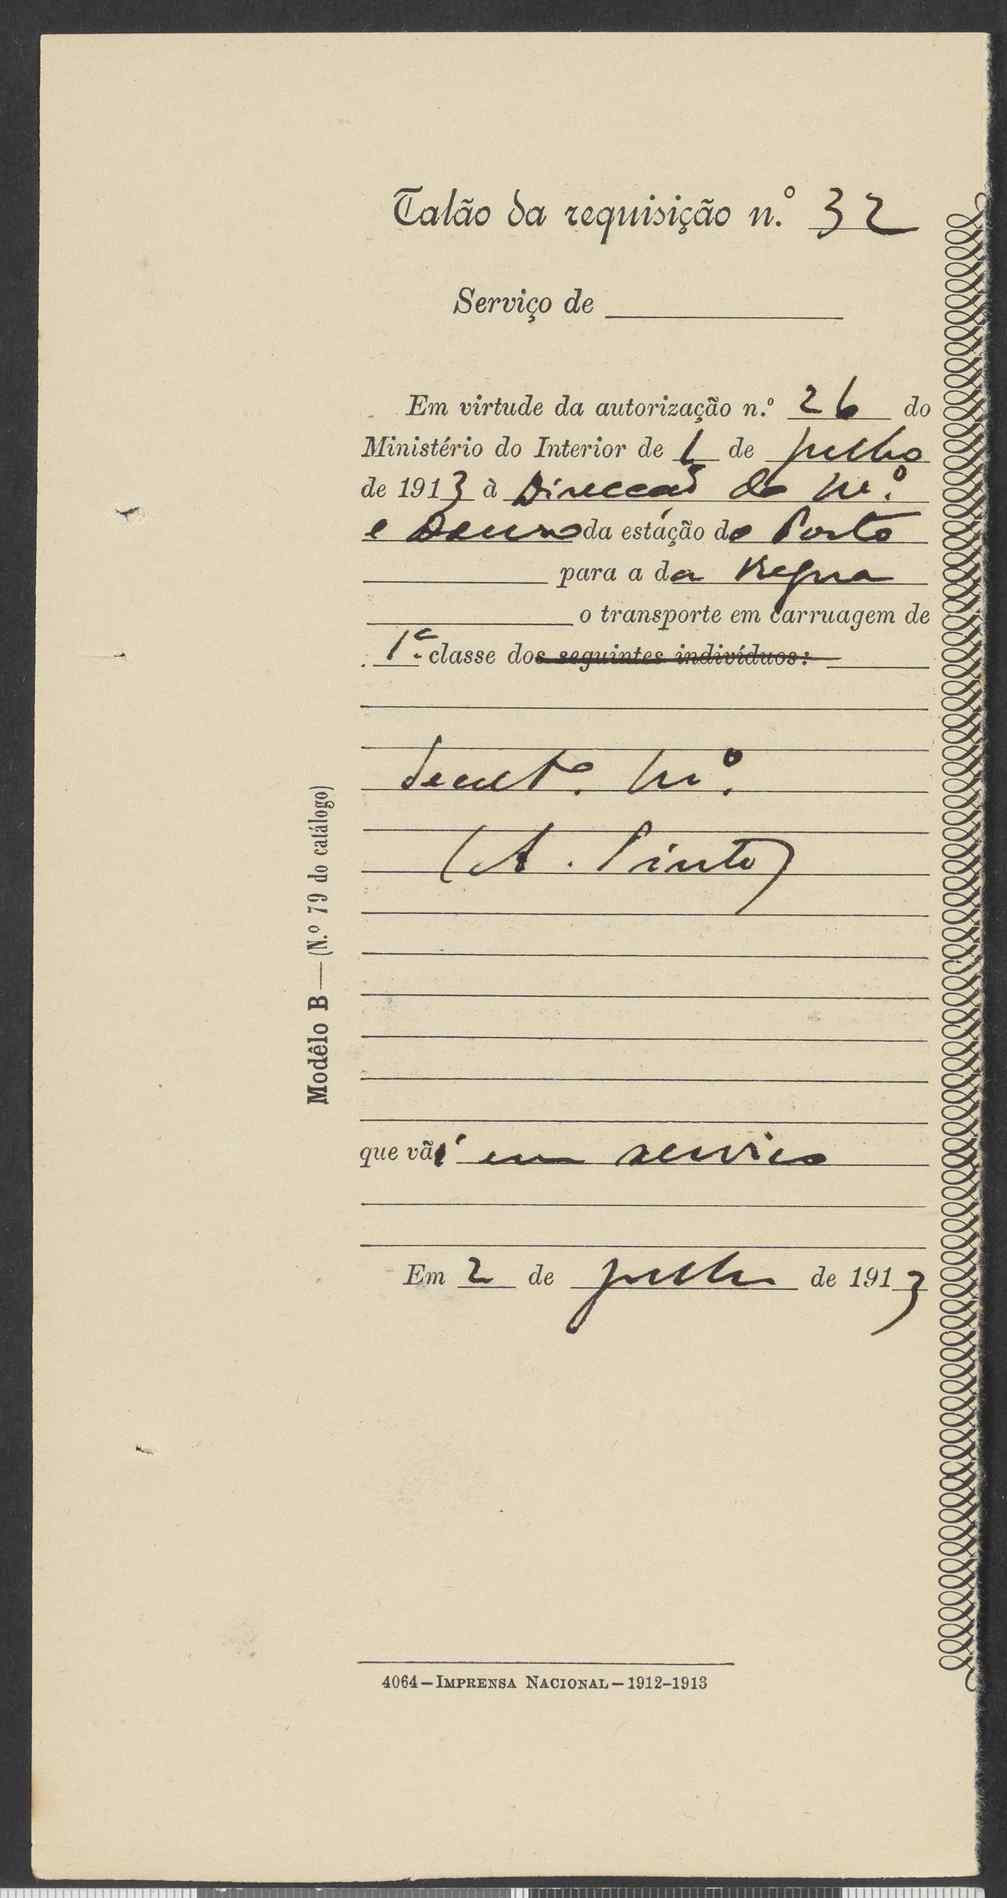 Talão da requisição n.º 32
Serviço de
Em virtude da autorização n.º 26 do
Ministério do Interior de 1 de julho
de 1913 à Direcção do M.º
e Douro da estação do Porto
para a da Regua
o transporte em carruagem de
1.ª classe dos seguintes indivíduos:
Secret.º M.º
(A. Pinto)
que vai em serviço
Em 2 de julho de 1913
Modêlo B—(N.º 79 do catálogo)
4064—IMPRENSA NACIONAL—1912-1913